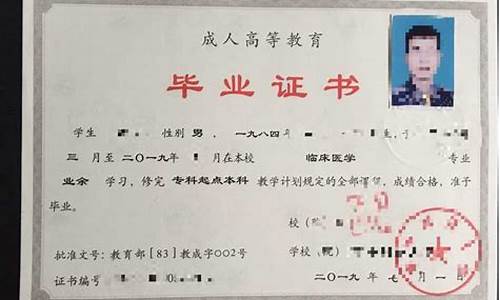 成人高等教育
毕业证书
学生 性别 男， 一九八四年 生，于
三 月至 二〇一九年 月在本校 临床医学 专业
业余 学习，修完 专科起点本科 教学计划规定的全部课程，成绩合格，准予
毕业。
校（
批准文号：教育部［83］教成字002号 学校（院）
证书编号
二〇一九年 七 月 一 日